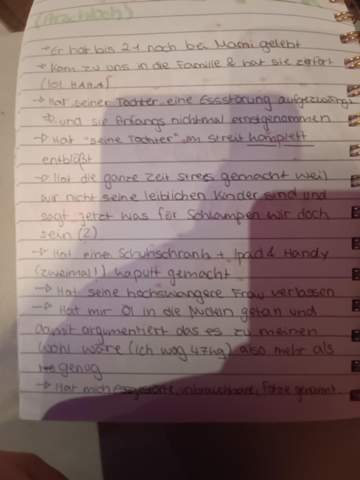 (Arschloch)
- Er hat bis 21 noch bei Mami gelebt
- Kam zu uns in die Familie & hat sie zerstört
(lol HAHA)
-> Hat seiner Tochter eine Essstörung aufgezwungen
und sie Anfangs nichtmal ernstgenommen
-> Hat "seine Tochter" im streit komplett
entblößt
- Hat die ganze Zeit stress gemacht weil
wir nicht seine leiblichen Kinder sind und
sagt jetzt was für Schlampen wir doch
sein (2)
-> Hat eine Schuhschrank + Ipad & Handy
(zweimal!) kaputt gemacht
-> Hat seine hochschwangere Frau verlassen
-> Hat mir Öl in die Nudeln getan und
damit argumentiert das es zu meinen
wohl wäre (ich wog 47kg) also mehr als
genug
-> Hat mich unbrauchbare Fotze genannt.